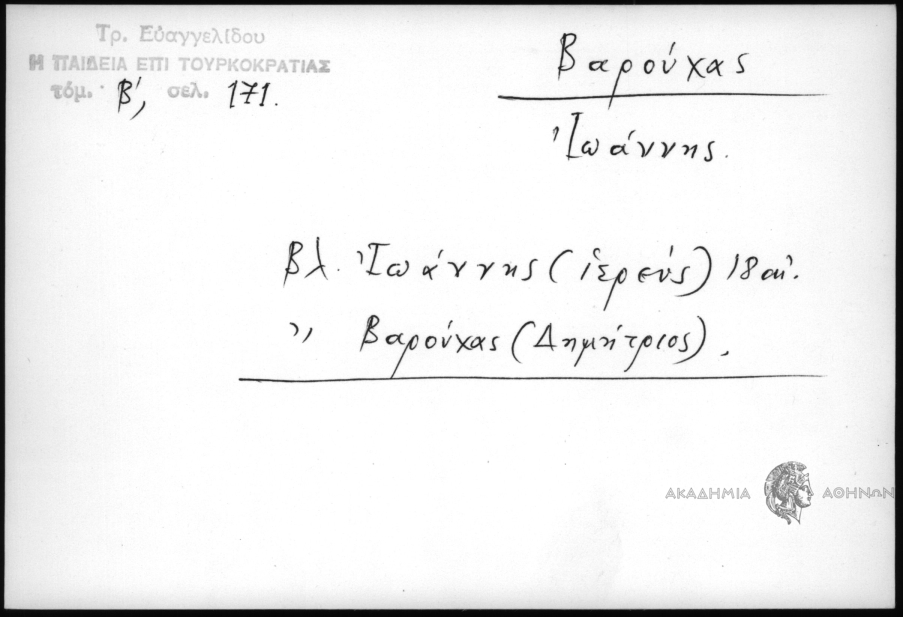 Τρ. Εὐαγγελίδου
Η ΠΑΙΔΕΙΑ ΕΠΙ ΤΟΥΡΚΟΚΡΑΤΙΑΣ
τόμ. Β', σελ. 171.
Βαρούχας
Ἰωάννης.
Βλ. Ἰωάννης (ἱερεύς) 18 αἰ.
〃 Βαρούχας (Δημήτριος).
ΑΚΑΔΗΜΙΑ ΑΘΗΝΩΝ